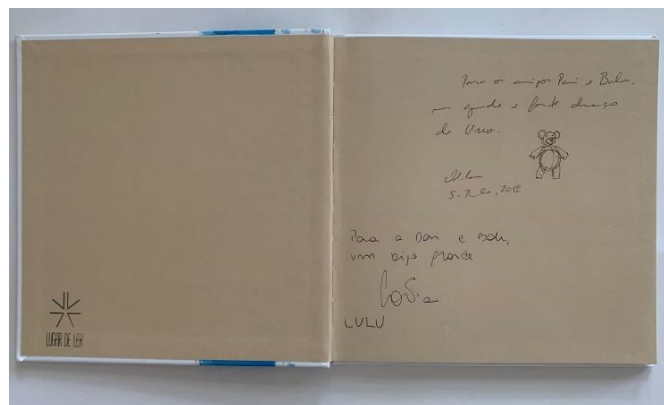 LUGAR DE LER
Para os amigos Dani e
um grande e forte abraço
do Urso.
5. 2018
Para a Dani e
um beijo grande
LULU